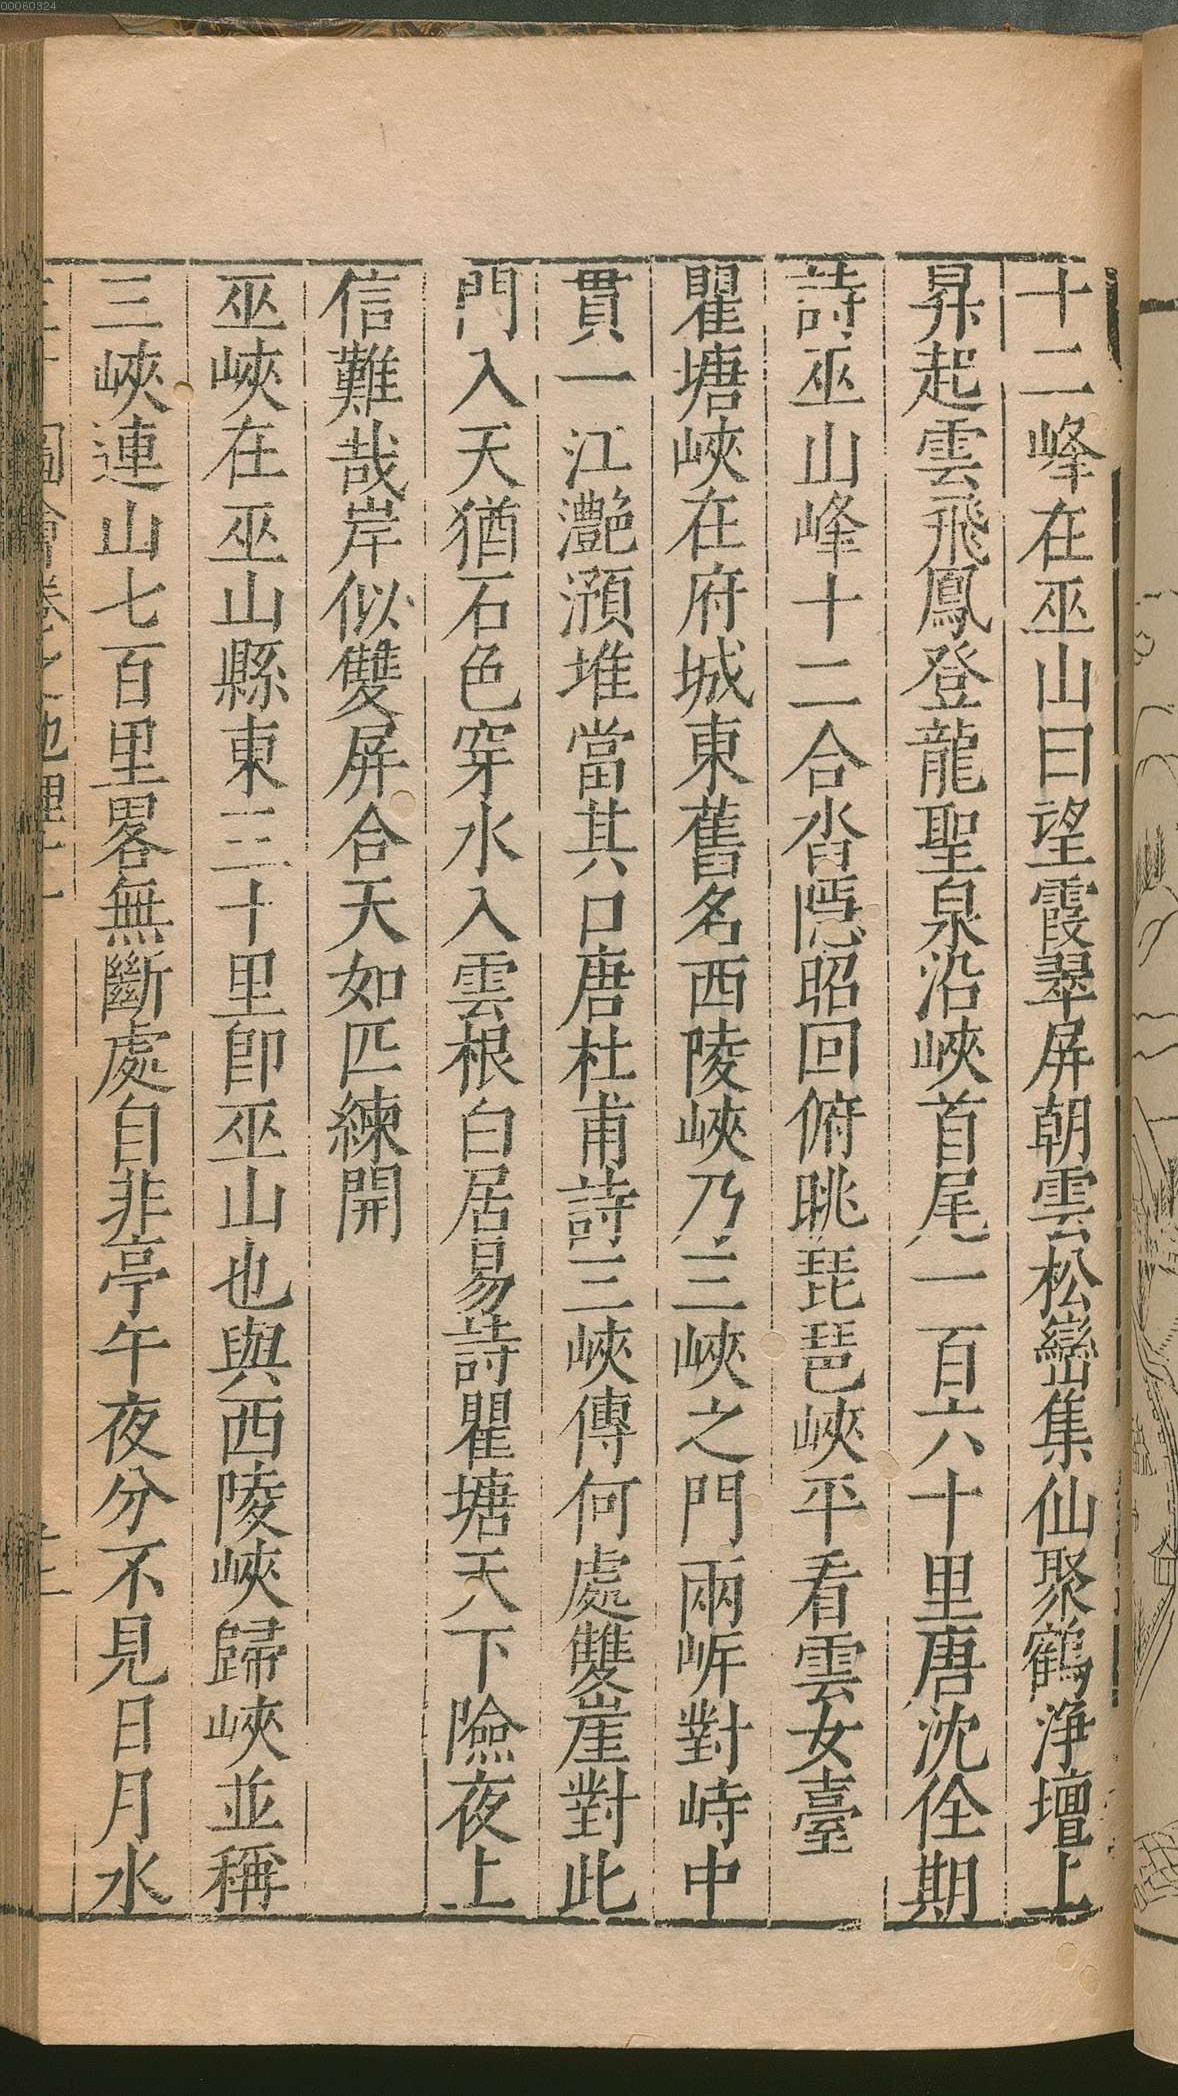 00060324
十二峰在巫山曰望霞翠屏朝雲松巒集仙聚鶴淨壇上
昇起雲飛鳳登龍聖泉沿峽首尾一百六十里唐沈佺期
詩巫山峰十二合沓隱昭回俯眺琵琶峽平看雲女臺
瞿塘峽在府城東舊名西陵峽乃三峽之門兩岍對峙中
貫一江灧澦堆當其口唐杜甫詩三峽傳何處雙崖對此
門入天猶石色穿水入雲根白居易詩瞿塘天下險夜上
信難哉岸似雙屏合天如匹練開
巫峽在巫山縣東三十里卽巫山也與西陵峽歸峽並稱
三峽連山七百里畧無斷處自非亭午夜分不見日月水
圖會卷之地理十一